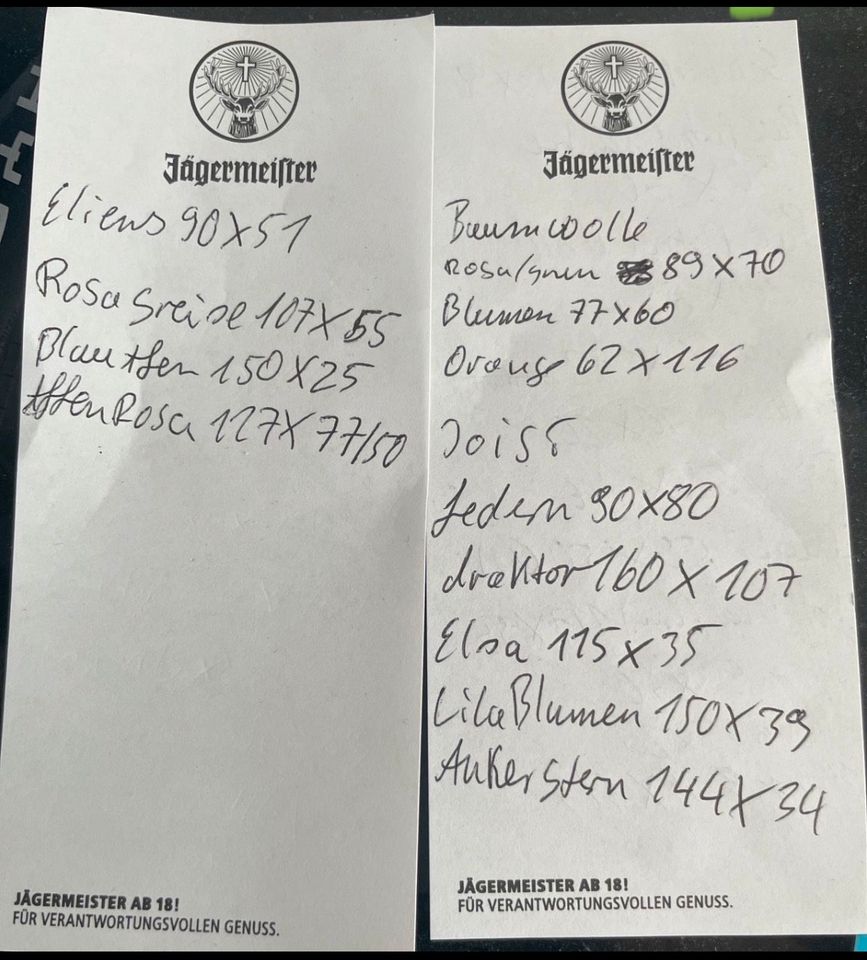 Jägermeister
Eliens 90X51
Rosa Greise 107X55
Blau 150X25
Rosa 127X77/50
JÄGERMEISTER AB 18!
FÜR VERANTWORTUNGSVOLLEN GENUSS.
Jägermeister
Baumwolle
Rosa/grün 89X70
Blumen 77x60
Orange 62X116
federn 90X80
draktor 160X107
Elsa 115x35
Lila Blumen 150X39
Anker Stern 144X34
JÄGERMEISTER AB 18!
FÜR VERANTWORTUNGSVOLLEN GENUSS.